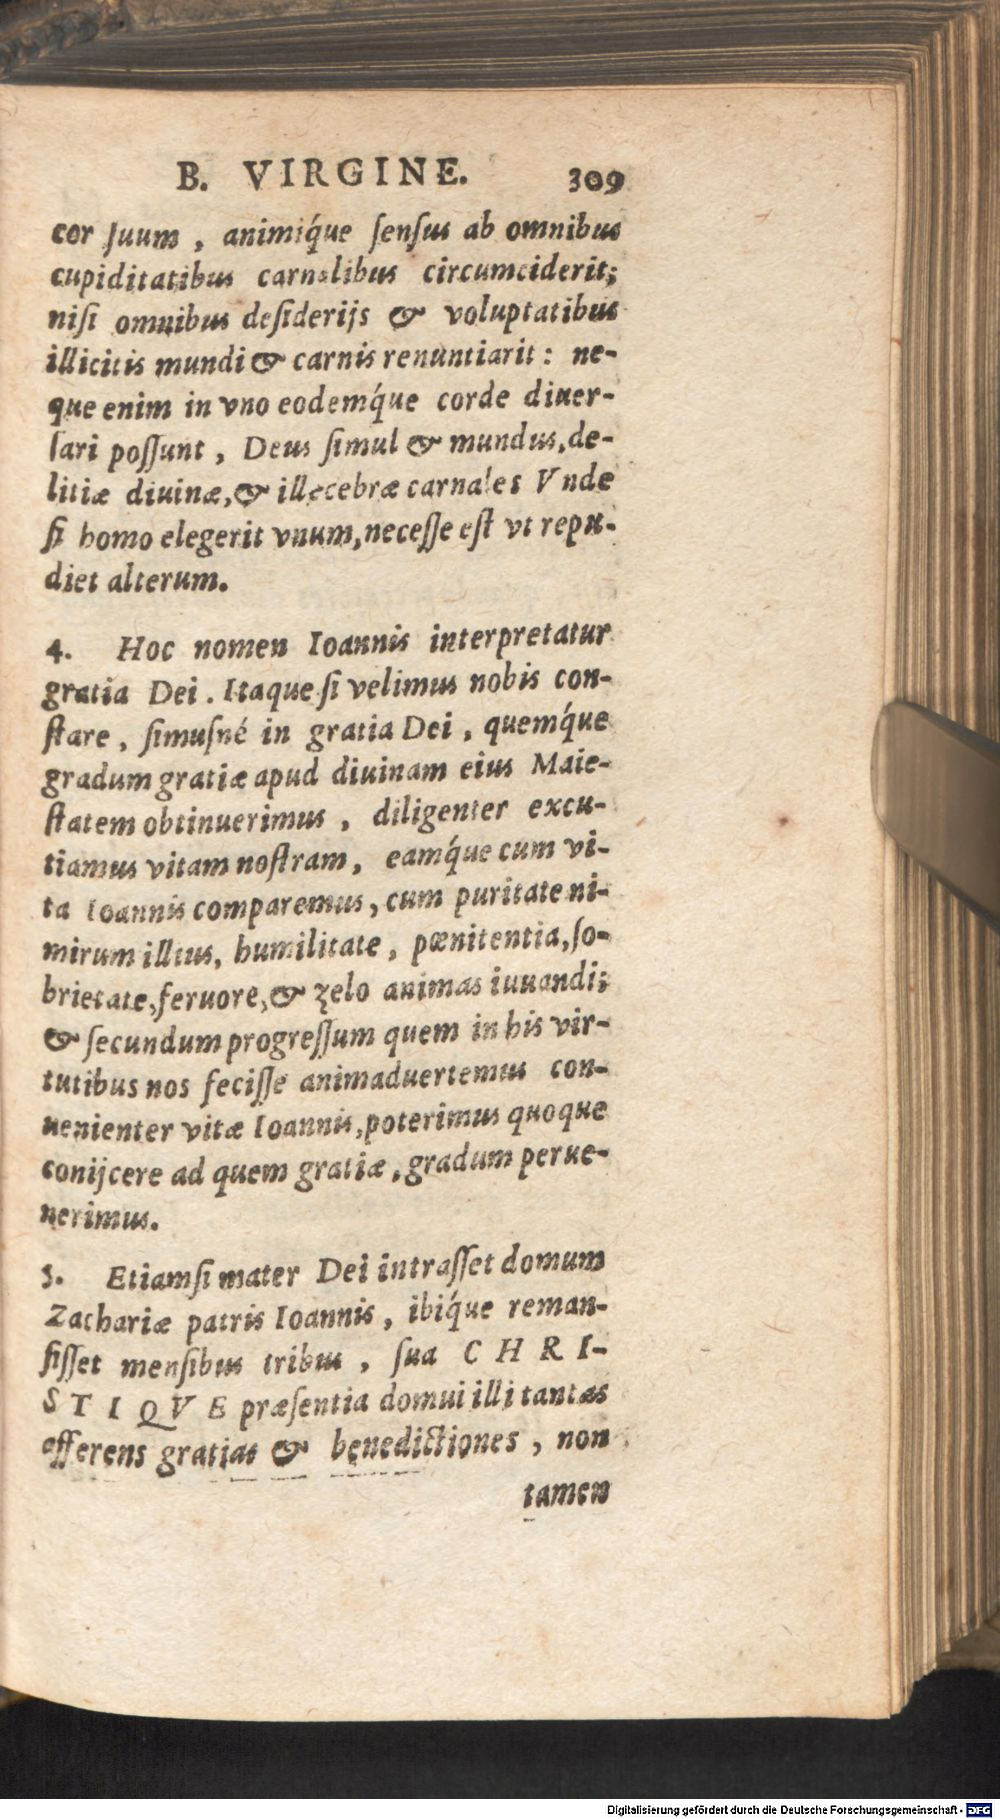 B. VIRGINE. 309
cor ſuum, animiq́ue ſenſus ab omnibus
cupiditatibus carnalibus circumciderit;
niſi omnibus deſiderijs & voluptatibus
illicitis mundi & carnis renuntiarit: ne-
que enim in vno eodemq́ue corde diuer-
ſari poſſunt, Deus ſimul & mundus, de-
litiæ diuinæ, & illecebræ carnales Vnde
ſi homo elegerit vnum, neceſſe eſt vt repu-
diet alterum.
4. Hoc nomen Ioannis interpretatur
gratia Dei. Itaque ſi velimus nobis con-
ſtare, ſimuſné in gratia Dei, quemq́ue
gradum gratiæ apud diuinam eius Maie-
ſtatem obtinuerimus, diligenter excu-
tiamus vitam noſtram, eamq́ue cum vi-
ta Ioannis comparemus, cum puritate ni-
mirum illius, humilitate, pœnitentia, ſo-
brietate, feruore, & zelo animas iuuandi;
& ſecundum progreſſum quem in his vir-
tutibus nos feciſſe animaduertemus con-
uenienter vitæ Ioannis, poterimus quoque
conijcere ad quem gratiæ, gradum perue-
nerimus.
5. Etiamſi mater Dei intraſſet domum
Zachariæ patris Ioannis, ibiq́ue reman-
ſiſſet menſibus tribus, ſua CHRI-
STIQVE præſentia domui illi tantas
afferens gratias & benedictiones, non
tamen
Digitalisierung gefördert durch die Deutsche Forschungsgemeinschaft - DFG